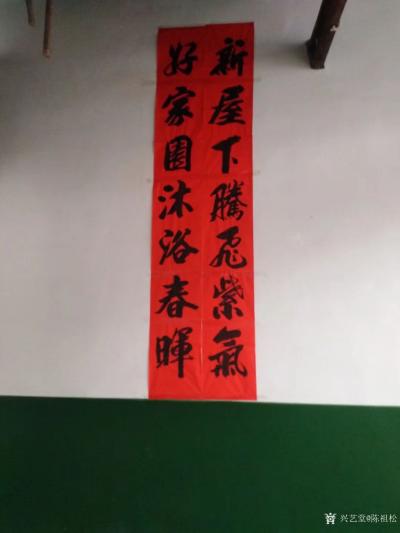 新屋下騰飛紫氣
好家園沐浴春暉
兴艺堂@陈祖松